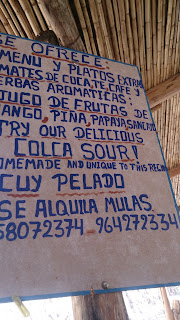 SE OFRECE:
MENU Y PLATOS EXTRAS
MATES DE CUCATE, CAFE Y
ERBAS AROMATICAS:
JUGO DE FRUTAS DE
ANGO, PIÑA, PAPAYA, SANCAYO
TRY OUR DELICIOUS
COLCA SOUR!
HOMEMADE AND UNIQUE TO THIS REGION
CUY PELADO
SE ALQUILA MULAS
58072374 - 964272334